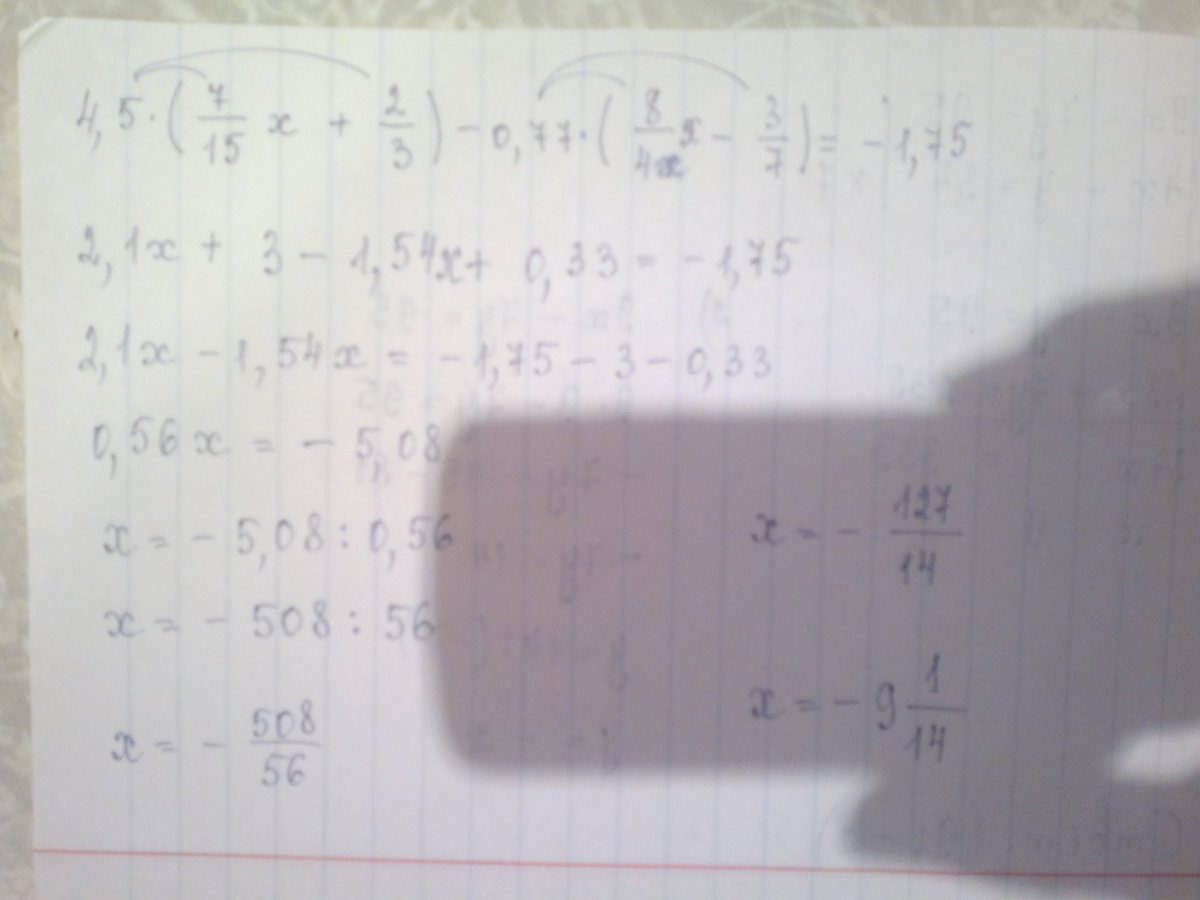 4,5·(7/15 x + 2/3) - 0,77·(8/4x - 3/7) = -1,75
2,1x + 3 - 1,54x + 0,33 = -1,75
2,1x - 1,54x = -1,75 - 3 - 0,33
0,56x = -5,08
x = -5,08 : 0,56
x = -508 : 56
x = - 508/56
x = - 127/14
x = -9 1/14